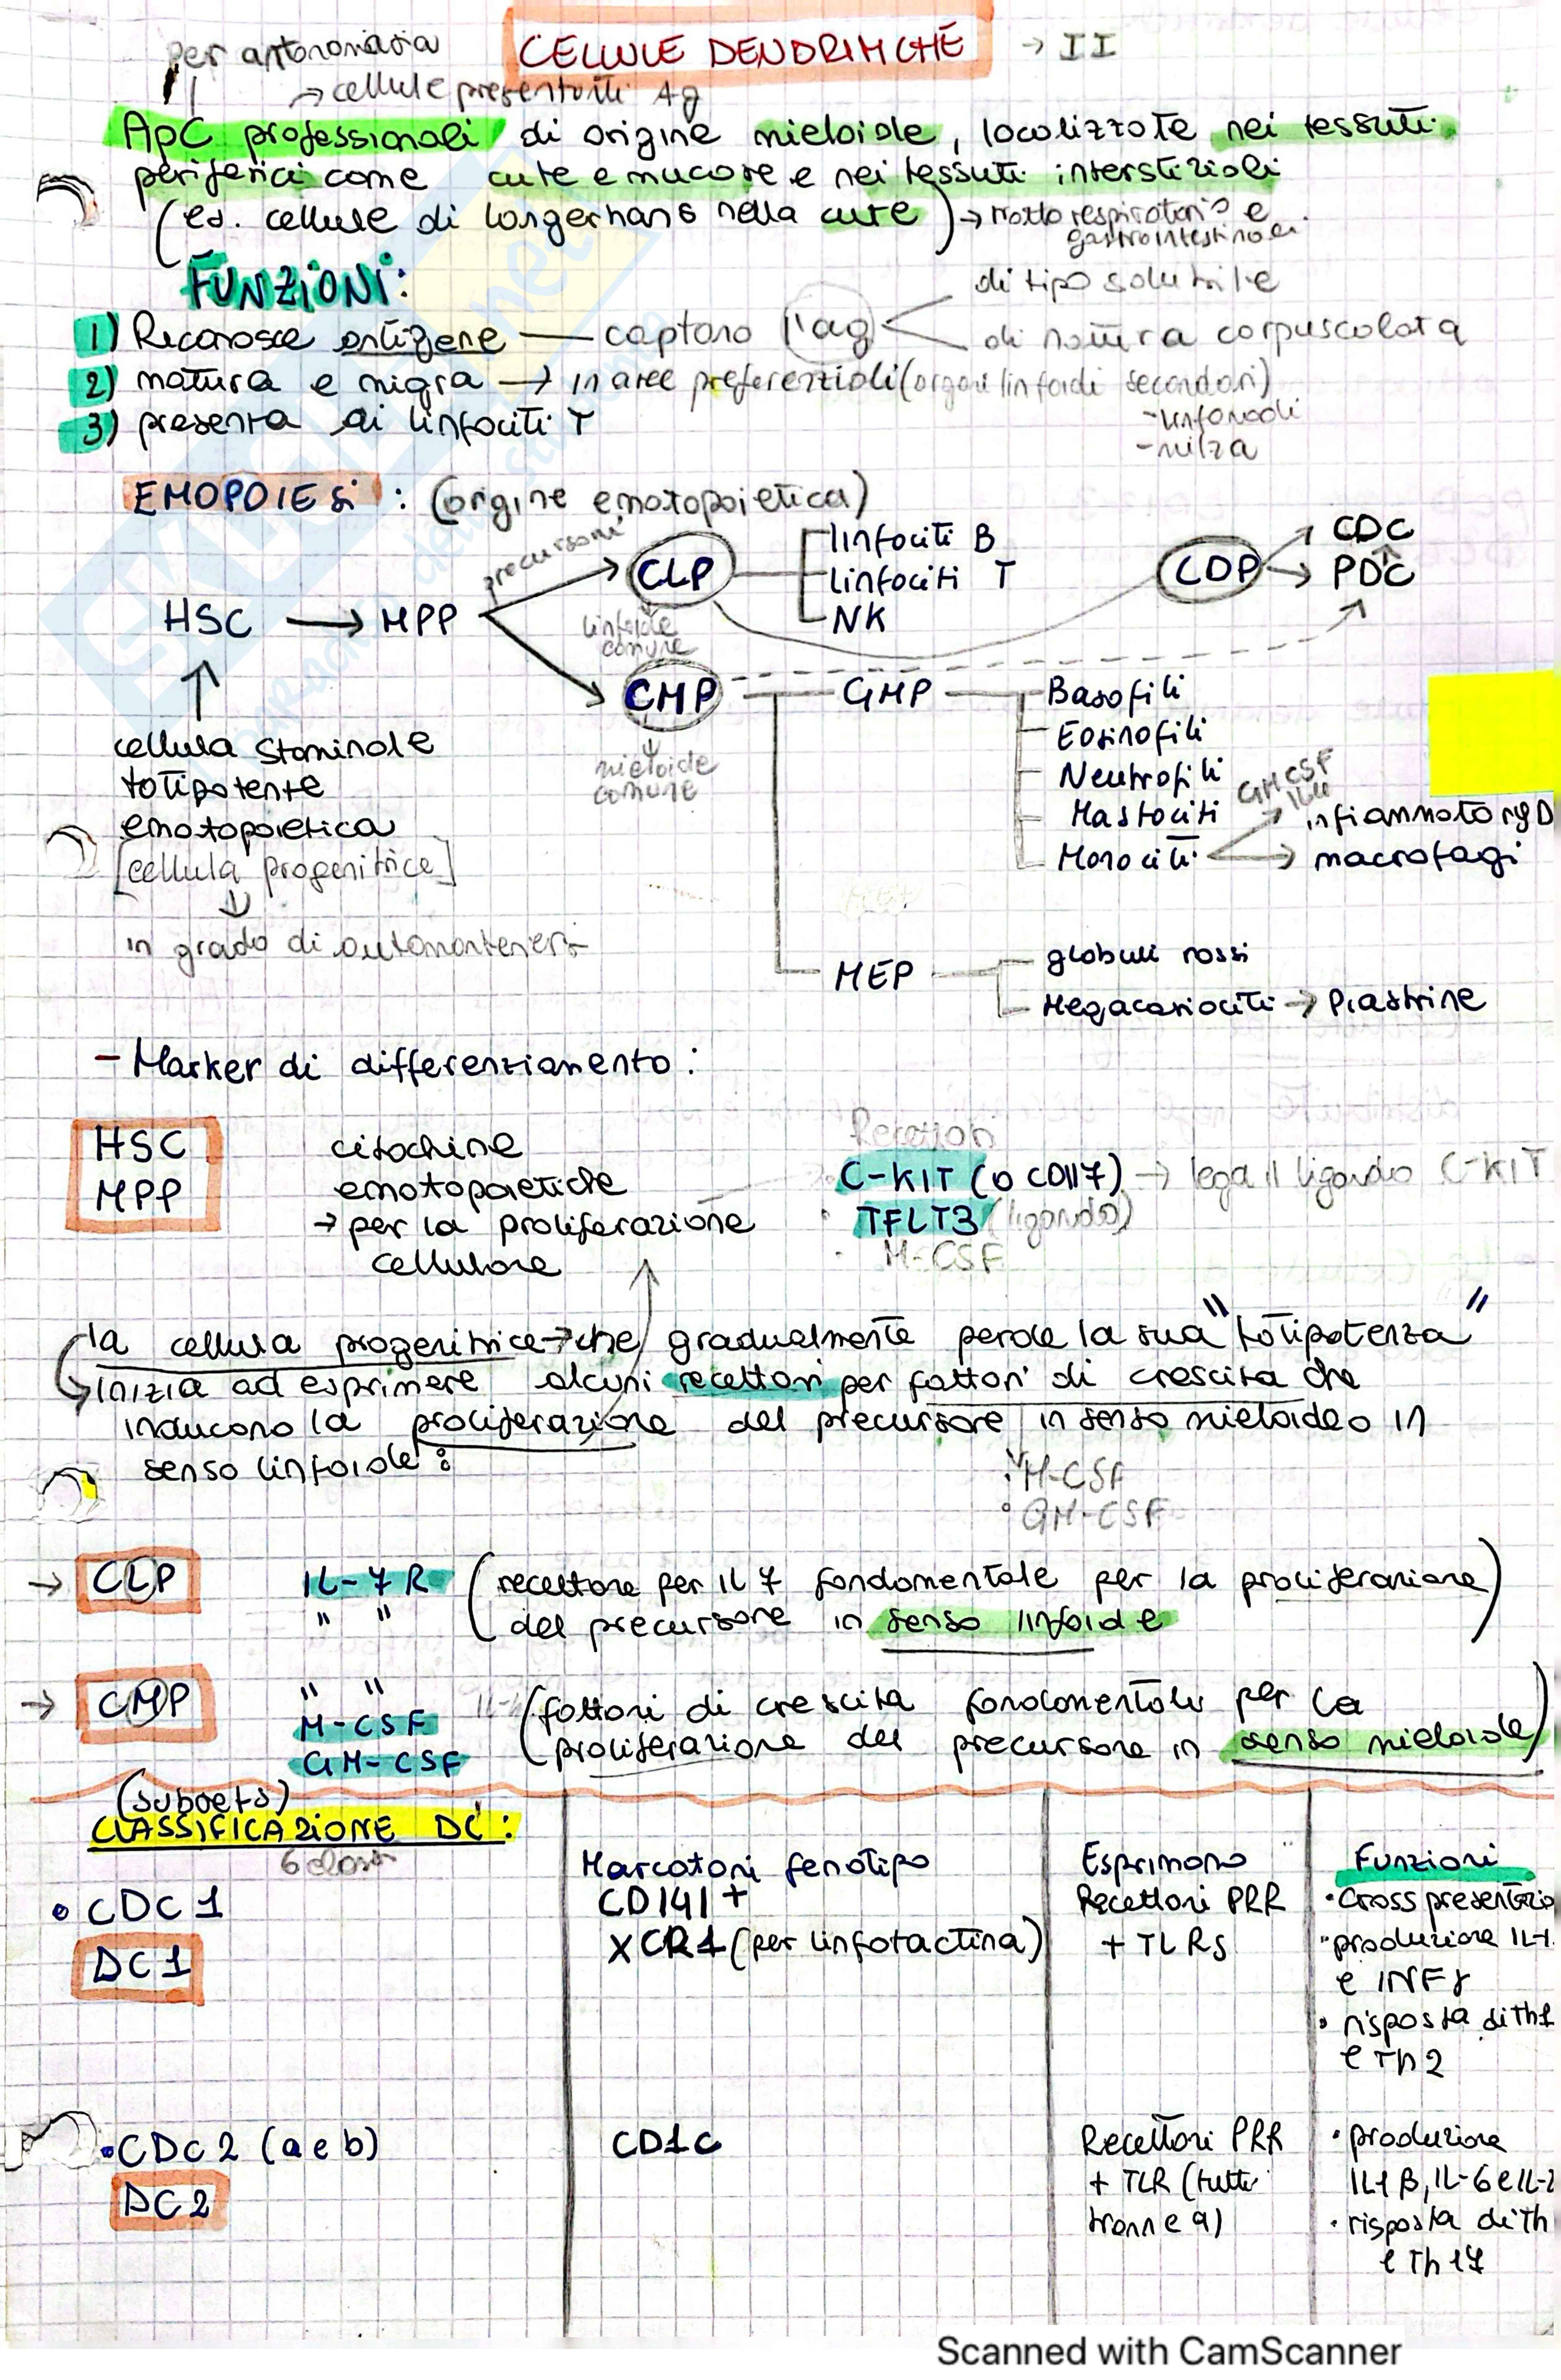 per antonomasia
CELLULE DENDRITICHE → II
→ cellule presentanti Ag
APC professionali di origine mieloide, localizzate nei tessuti
periferici come cute e mucose e nei tessuti interstiziali
(es. cellule di Langerhans nella cute) → tratto respiratorio e
gastrointestinale
FUNZIONI:
di tipo solubile
1) Riconosce antigene — captano l'ag
di natura corpuscolata
2) matura e migra → in aree preferenziali (organi linfoidi secondari)
- linfonodi
3) presenta ai linfociti T
- milza
EMOPOIESI : (origine ematopoietica)
precursori
CLP
linfociti B
linfociti T
NK
CDP
CDC
PDC
HSC → MPP
linfoide
comune
CMP
GMP
Basofili
Eosinofili
Neutrofili
Mastociti
Monociti
GMCSF
IL4
infiammatory D
macrofagi
mieloide
comune
cellula staminale
totipotente
ematopoietica
[cellula progenitrice]
in grado di automantenersi
MEP
globuli rossi
Megacariociti → Piastrine
- Marker di differenziamento:
HSC
MPP
citochine
ematopoietiche
→ per la proliferazione
cellulare
Recettori
C-KIT (o CD117) → lega il ligando C-KIT
TFLT3 (ligando)
M-CSF
la cellula progenitrice → che gradualmente perde la sua "totipotenza"
inizia ad esprimere alcuni recettori per fattori di crescita che
inducono la proliferazione del precursore in senso mieloide o in
senso linfoide:
• M-CSF
• GM-CSF
→ CLP
IL-7R (recettore per IL7 fondamentale per la proliferazione
" " del precursore in senso linfoide)
→ CMP
" "
M-CSF
GM-CSF
(fattori di crescita fondamentali per la
proliferazione del precursore in senso mieloide)
(subsets)
CLASSIFICAZIONE DC:
6 classi
Marcatori fenotipo
Esprimono
Funzioni
• CDC1
DC1
CD141+
XCR1 (per linfotactina)
Recettori PRR
+ TLRs
• Cross presentazio
• produzione IL-1
e INFγ
• risposta di th1
e Th2
• CDC2 (a e b)
DC2
CD1c
Recettori PRR
+ TLR (tutti
tranne 9)
• produzione
IL1β, IL-6 e IL-2
• risposta di th
e Th17
Scanned with CamScanner